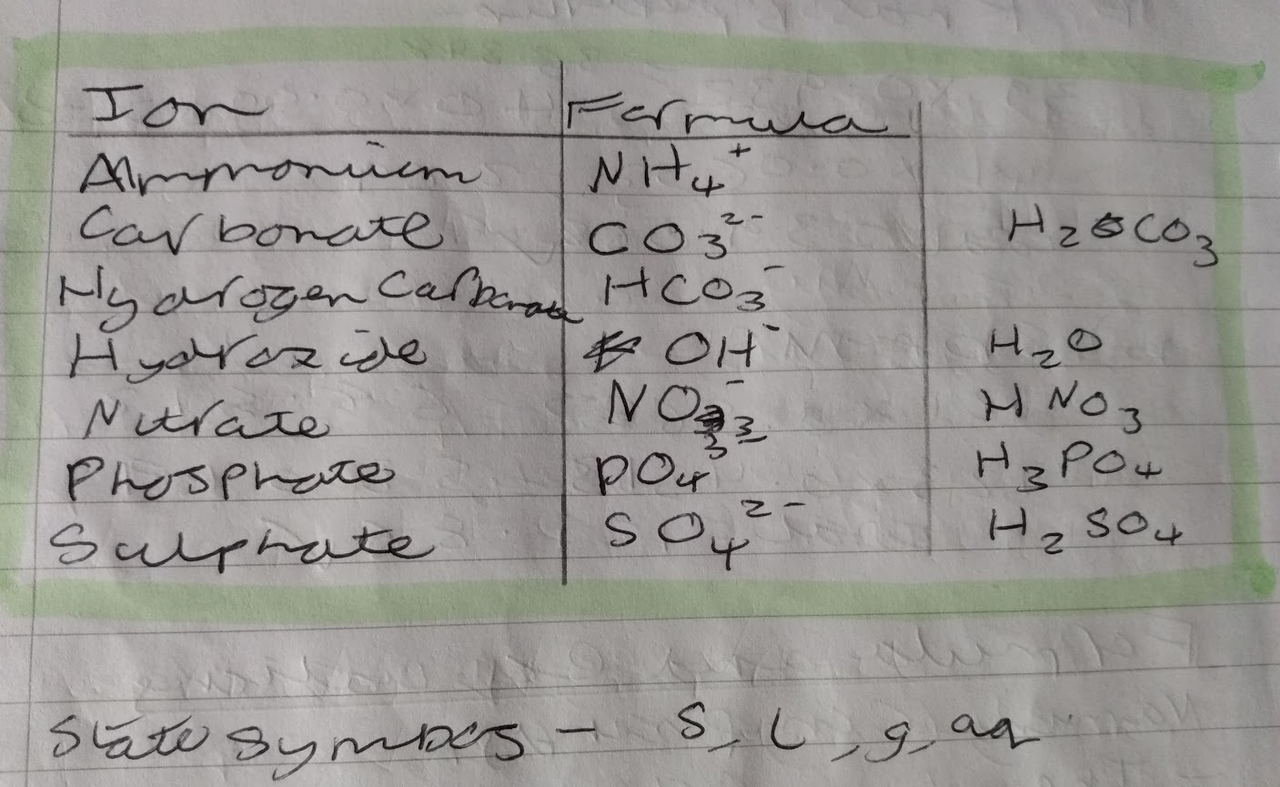 Ion Formula
Ammonium NH₄⁺
Carbonate CO₃²⁻ H₂CO₃
Hydrogen Carbonate HCO₃⁻
Hydroxide OH⁻ H₂O
Nitrate NO₃⁻ HNO₃
Phosphate PO₄³⁻ H₃PO₄
Sulphate SO₄²⁻ H₂SO₄
State symbols - s, l, g, aq